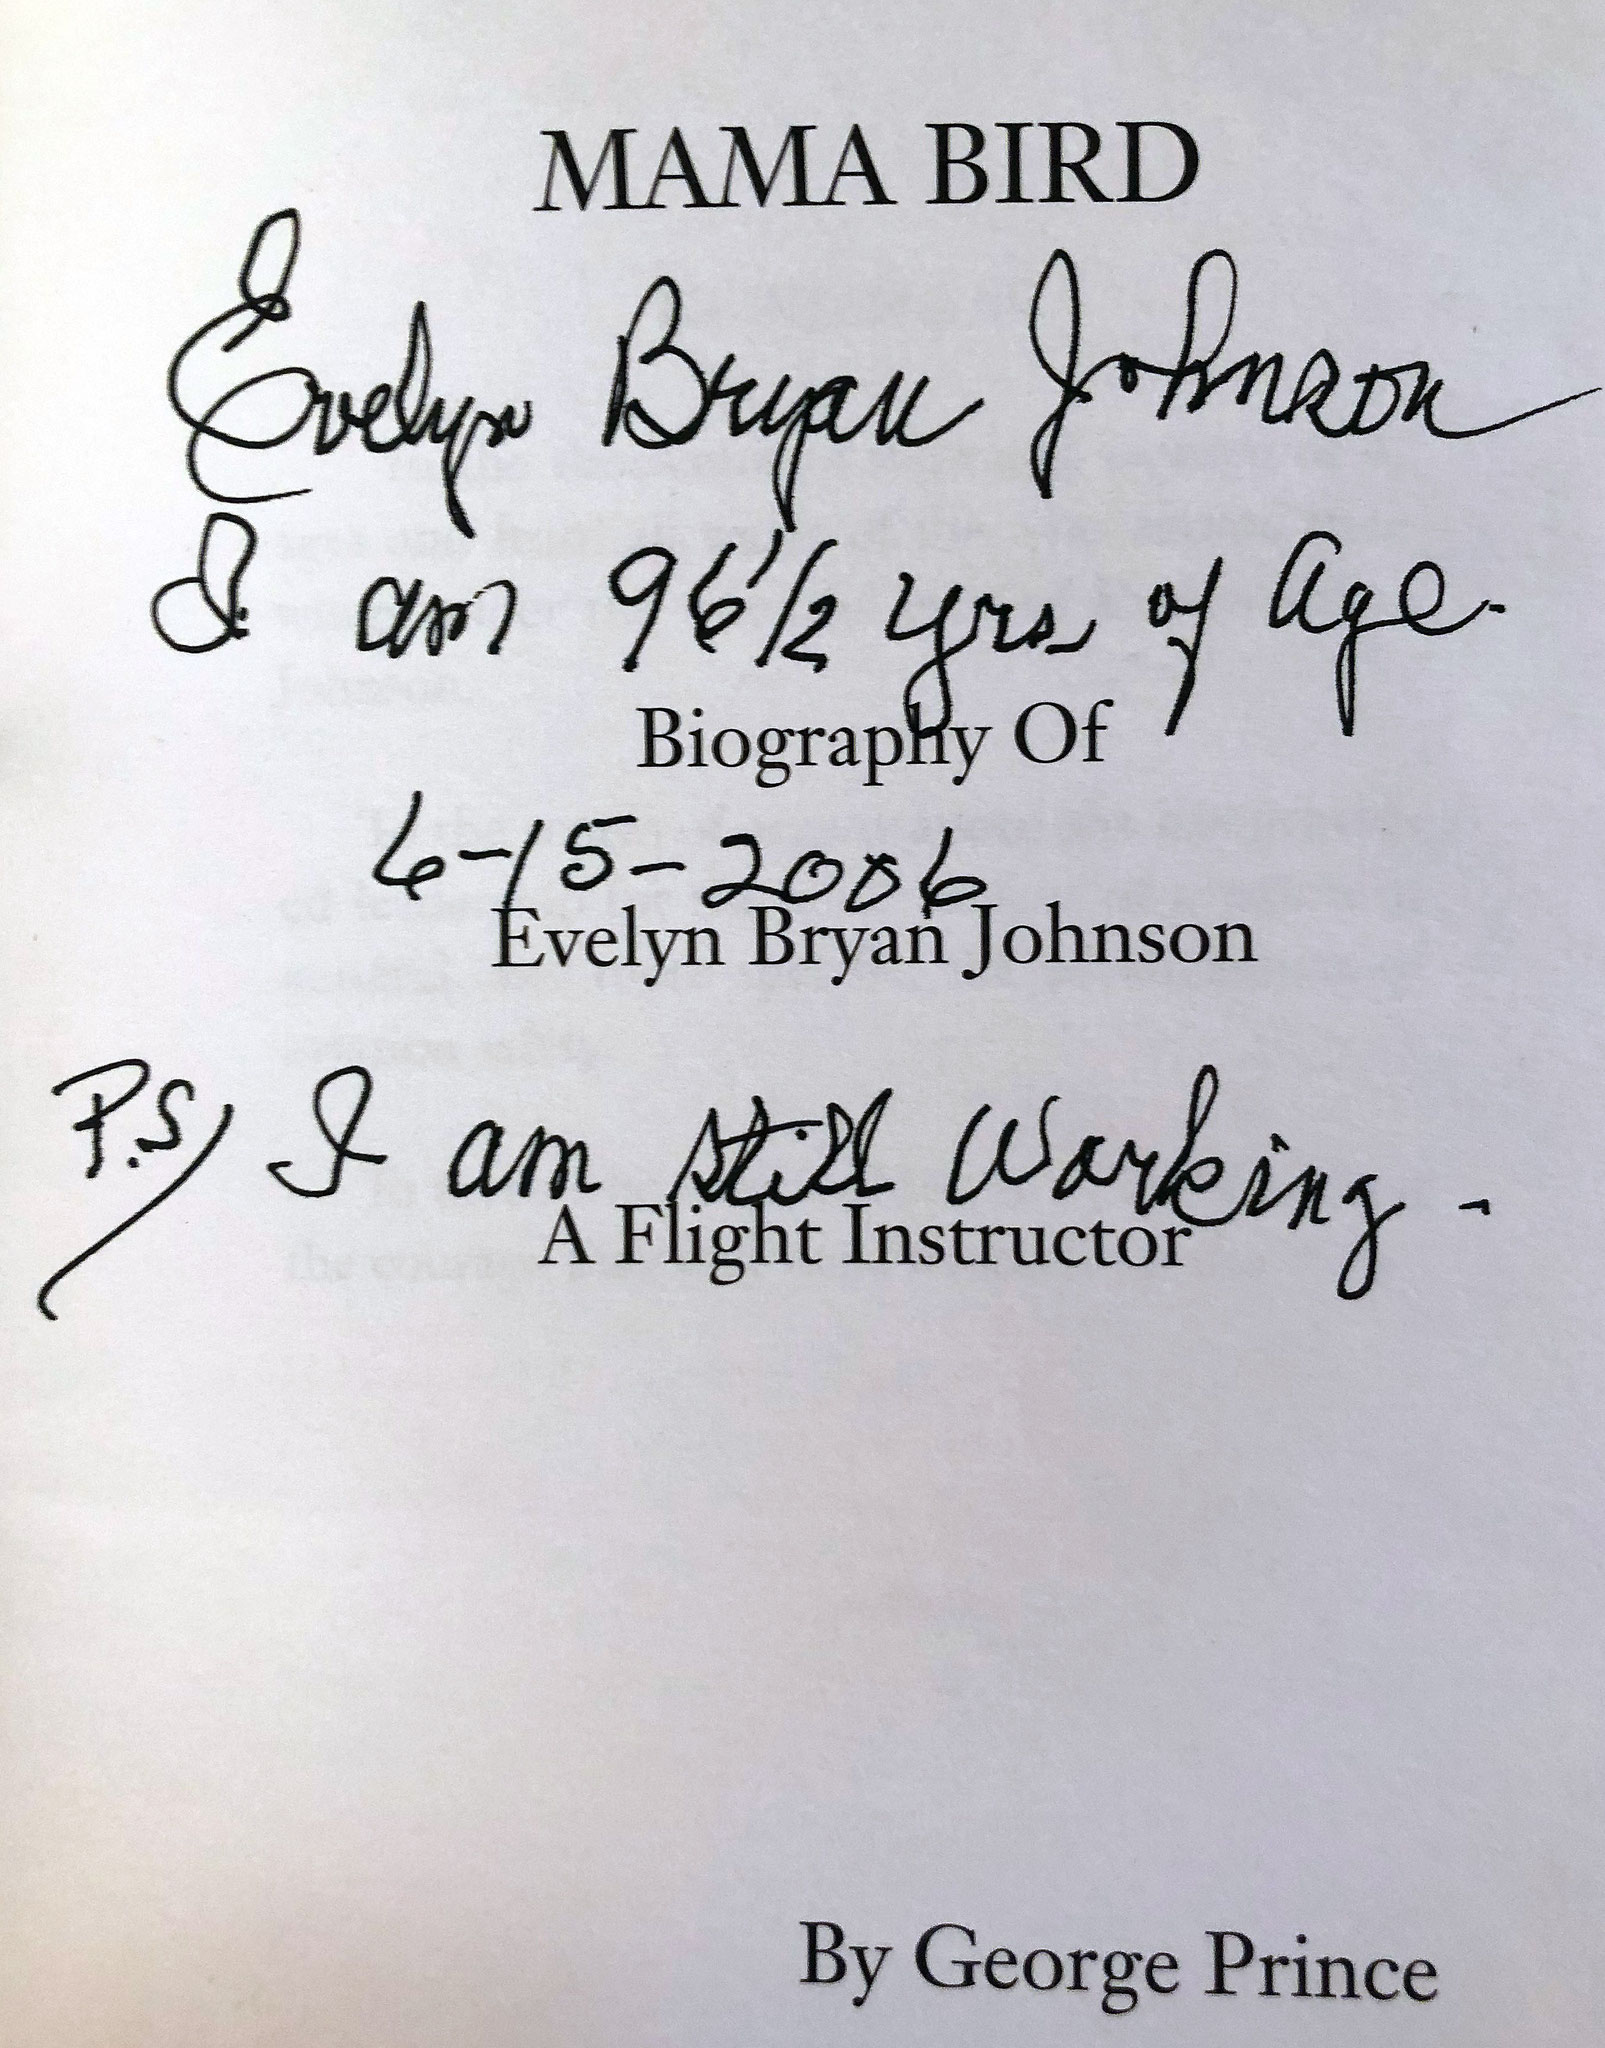 MAMA BIRD
Evelyn Bryan Johnson
I am 96 1/2 yrs of Age.
Biography Of
6-15-2006
Evelyn Bryan Johnson
P.S/ I am still Working -
A Flight Instructor
By George Prince